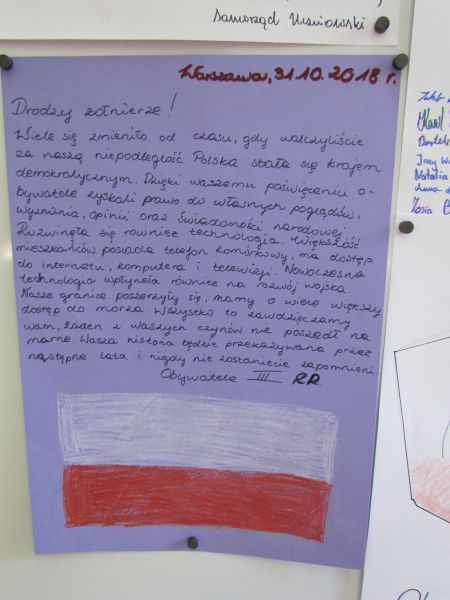 Samorząd Uczniowski
Warszawa, 31.10.2018 r.
Drodzy żołnierze!
Wiele się zmieniło od czasu, gdy walczyliście
za naszą niepodległość. Polska stała się krajem
demokratycznym. Dzięki waszemu poświęceniu o-
bywatele zyskali prawo do własnych poglądów,
wyznania, opinii oraz świadomości narodowej.
Rozwinęła się również technologia. Większość
mieszkańców posiada telefon komórkowy, ma dostęp
do internetu, komputera i telewizji. Nowoczesna
technologia wpłynęła również na rozwój wojska.
Nasze granice poszerzyły się, mamy o wiele większy
dostęp do morza. Wszystko to zawdzięczamy
wam, żaden z waszych czynów nie poszedł na
marne. Wasza historia będzie przekazywana przez
następne lata i nigdy nie zostaniecie zapomnieni.
Obywatele III RP.
Jerzy
Natalia
Zosia